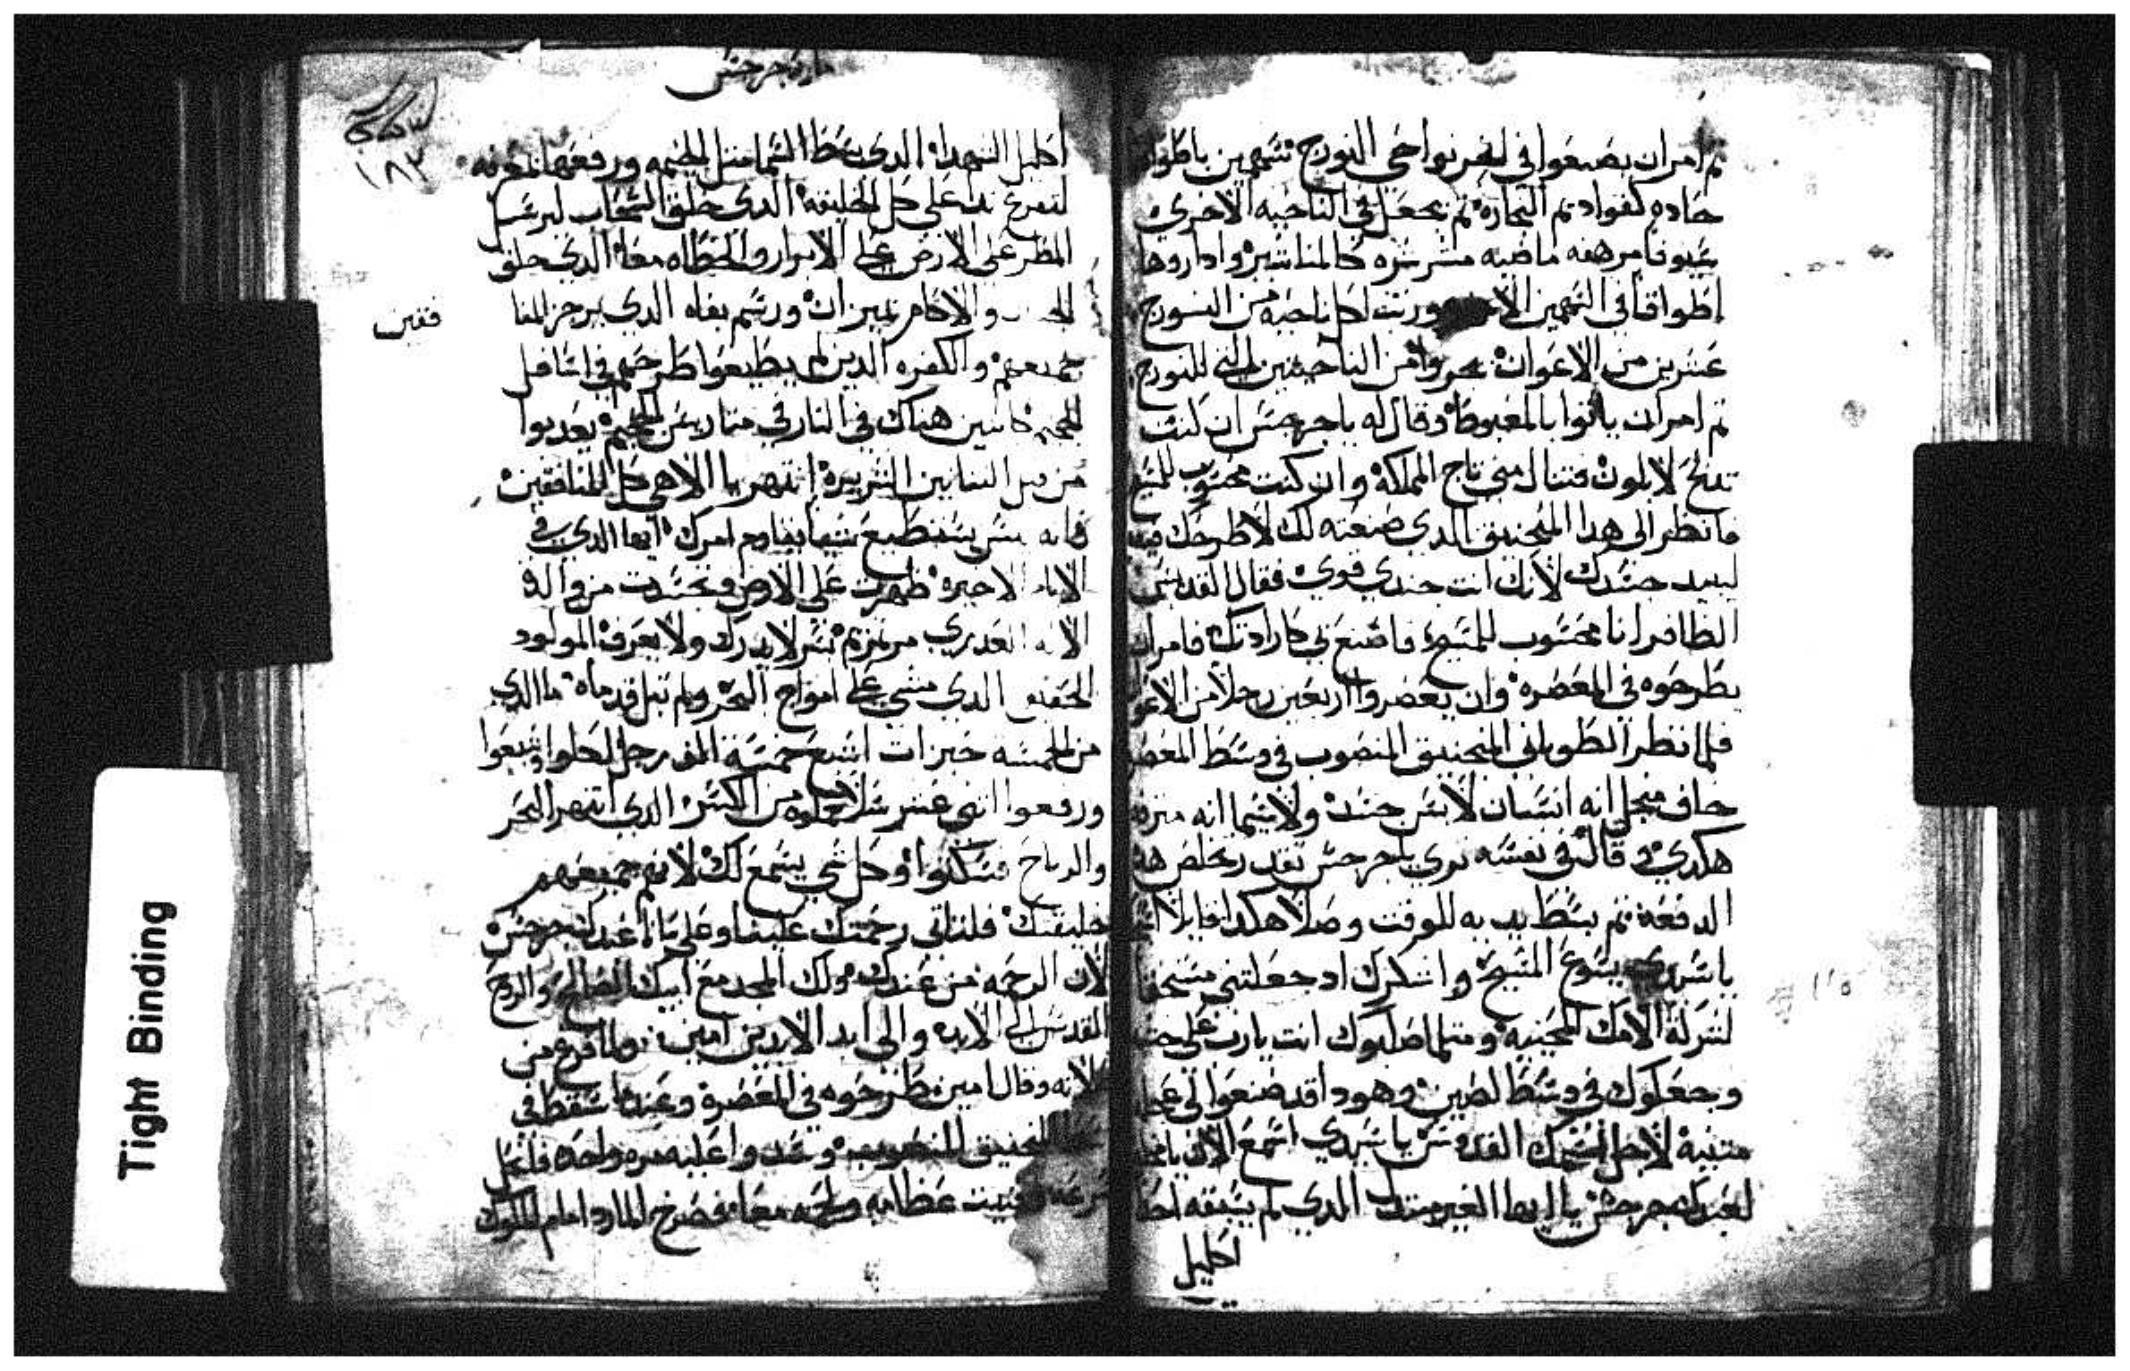 ثم امران يصنعوا في اخر نواحي النورج سهمين باطواق
حاده كفوادم النجاره ثم يجعل في الناحيه الاخري
سيوفا مرهفه ماضيه مشرشره كالمناشير واداروها
اطواقا في السهمين ورتب لكل ناحيه من النورج
عشرين من الاعوان يجروا من الناحيتين للنورج
ثم امران ياتوا بالمغبوط وقال له يا جرجس ان كنت
تدبح لابلون فتنال مني تاج المملكه وان كنت محسوب للمسيح
فانظر الي هدا المنجنيق الدي صنعته لك لاطرحك فيه
ليبيد جسدك لانك انت جندي قوي فقال القديس
الظافر انا محسوب للمسيح فاصنع بي كارادتك فامران
يطرحوه في المعصره وان يعصروا اربعين رجلا من الاعوان
فلما نظر الطوباني المنجنيق المنصوب في وسط المعصره
خاف منجل انه انسان لابس جسد ولاسيما انه
هكدي قال في نفسه تري يا جرجس تقدر تخلص هده
الدفعه ثم بسط يديه للوقت وصلا هكدا قايلا
يا سيدي يسوع المسيح واشكرك اد جعلتني مستحقا
لشركة الامك المحييه ومتلما صلبوك انت يارب علي خشبه
وجعلوك في وسط لصين وهودا قد صنعوا لي
متنيه لاجل اسمك القدوس يا سيدي اسمع الان
لعبدك جرجس يا ايها الغير مبتدي الدي لم يسبقه احد
اكليل
مار جرجس
١٨٣
اكليل الشهدا الدي بسط السما متل الخيمه ورفعها
لتفرغ ندا علي كل الخليقه الدي خلق السحاب ليرسل
المطر علي الارض علي الابرار والخطاه معا الدي خلق
والاكام بميزان ورسم بفاه الدي يرجز المنا
فقين
جميعهم والكفره الدين لم يطيعوا طرحهم في اسافل
الجحيم كاينين هناك في النار في متاريس الجحيم يعدبوا
من قبل التنانين الشريره انتهر يا الاهي كل المنافقين
فانه ليس يستطيع شيا يقاوم امرك ايها الدي في
الايام الاخيره ظهرت علي الارض وتجسدت من والدة
الاله العدري مرتمريم بسر لايدرك ولايعرف المولود
الحقيقي الدي مشي علي امواج البحر ولم تبل قدماه الدي
من الخمسه خبزات اشبع خمسة الف رجل اكلوا وشبعوا
ورفعوا اتني عشر سل مملوه من الكسر الدي انتهر البحر
والرياح فسكنوا وكل شي يسمع لك لانهم جميعهم
خليقتك فلتاتي رحمتك علينا وعلي انا عبدك جرجس
لان الرحمه من عندك ولك المجد مع ابيك الصالح والروح
القدس الي الابد والي ابد الابدين امين ولما فرغ من
صلاته وقال امين طرحوه في المعصره وعندما سقط في
المنجنيق المنصوب وشدوا عليه مره واحده فانحل
عظامه ولحمه معا فصرخ المارد امام الملوك